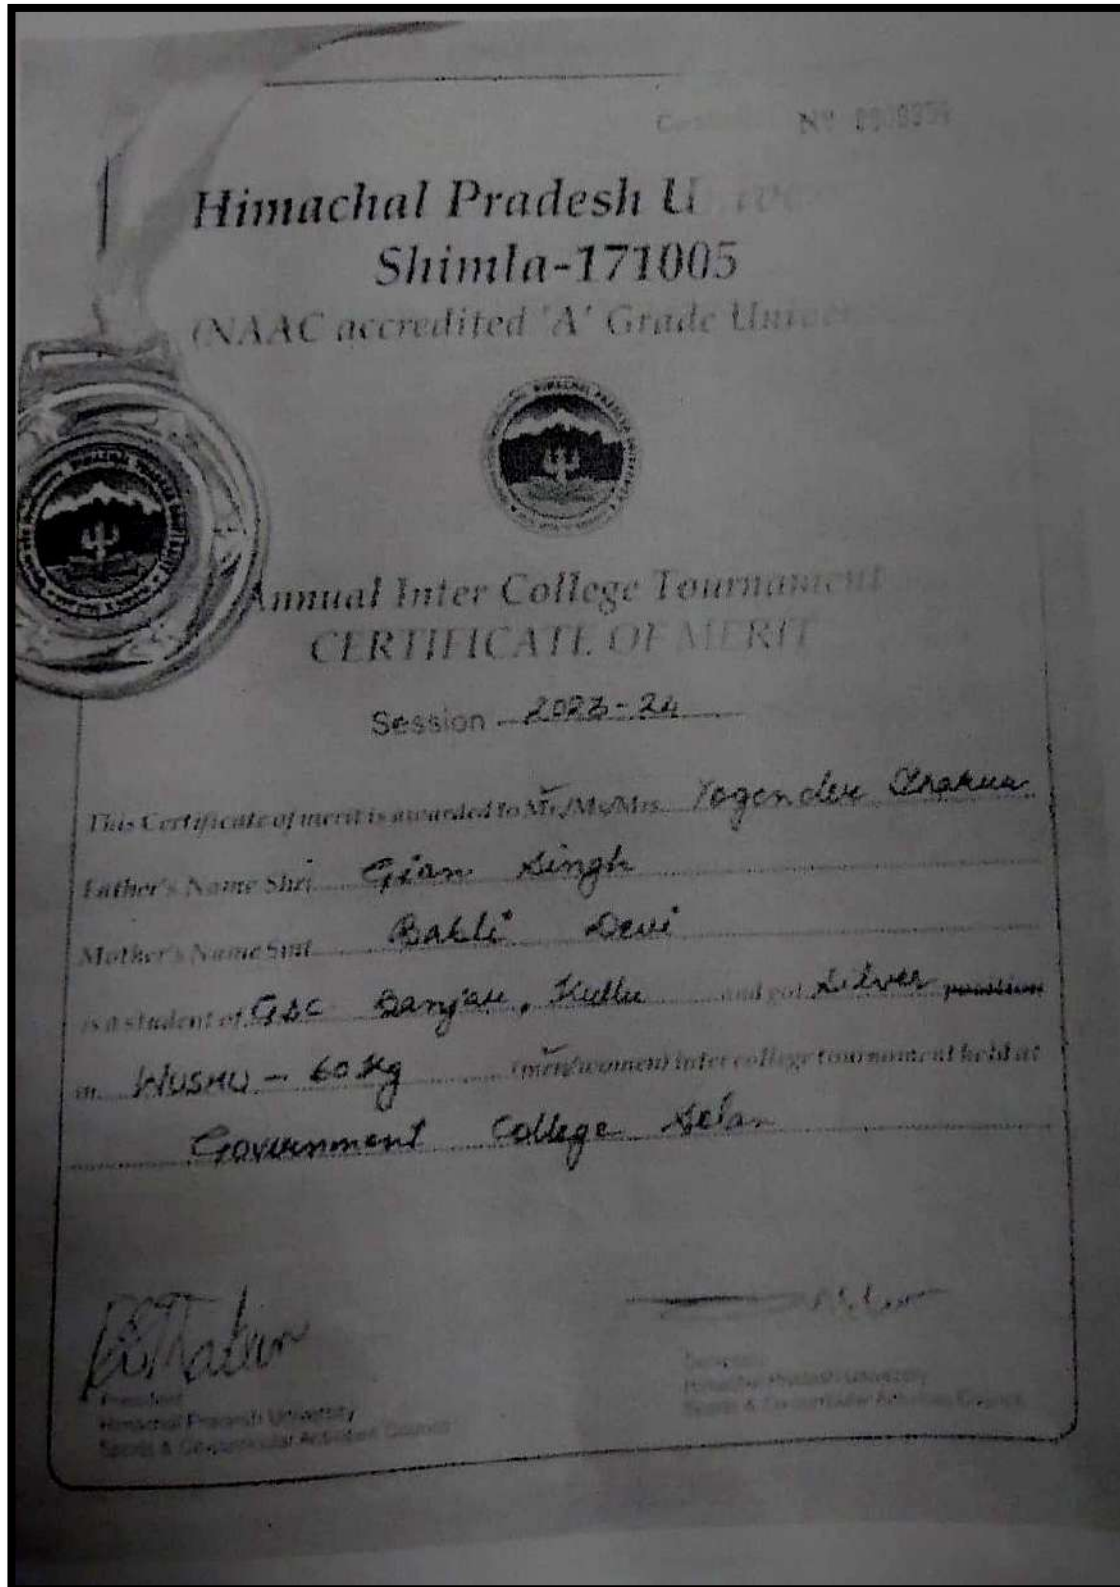 Nº
Himachal Pradesh U
Shimla-171005
(NAAC accredited 'A' Grade
HIMACHAL PRADESH
Annual Inter College Tournament
CERTIFICATE OF MERIT
Session 2023-24
This Certificate of merit is awarded to Mr./Ms/Mrs. Yogender
Father's Name Shri Gian Singh
Mother's Name Smt Devi
is a student of GDC Banjar, Kullu and got Silver position
in WUSHU - 60 Kg (men/women) inter college tournament held at
Government College
President
Himachal Pradesh University
Sports & Co-curricular Activities Council
Himachal Pradesh University
Sports & Co-curricular Activities Council